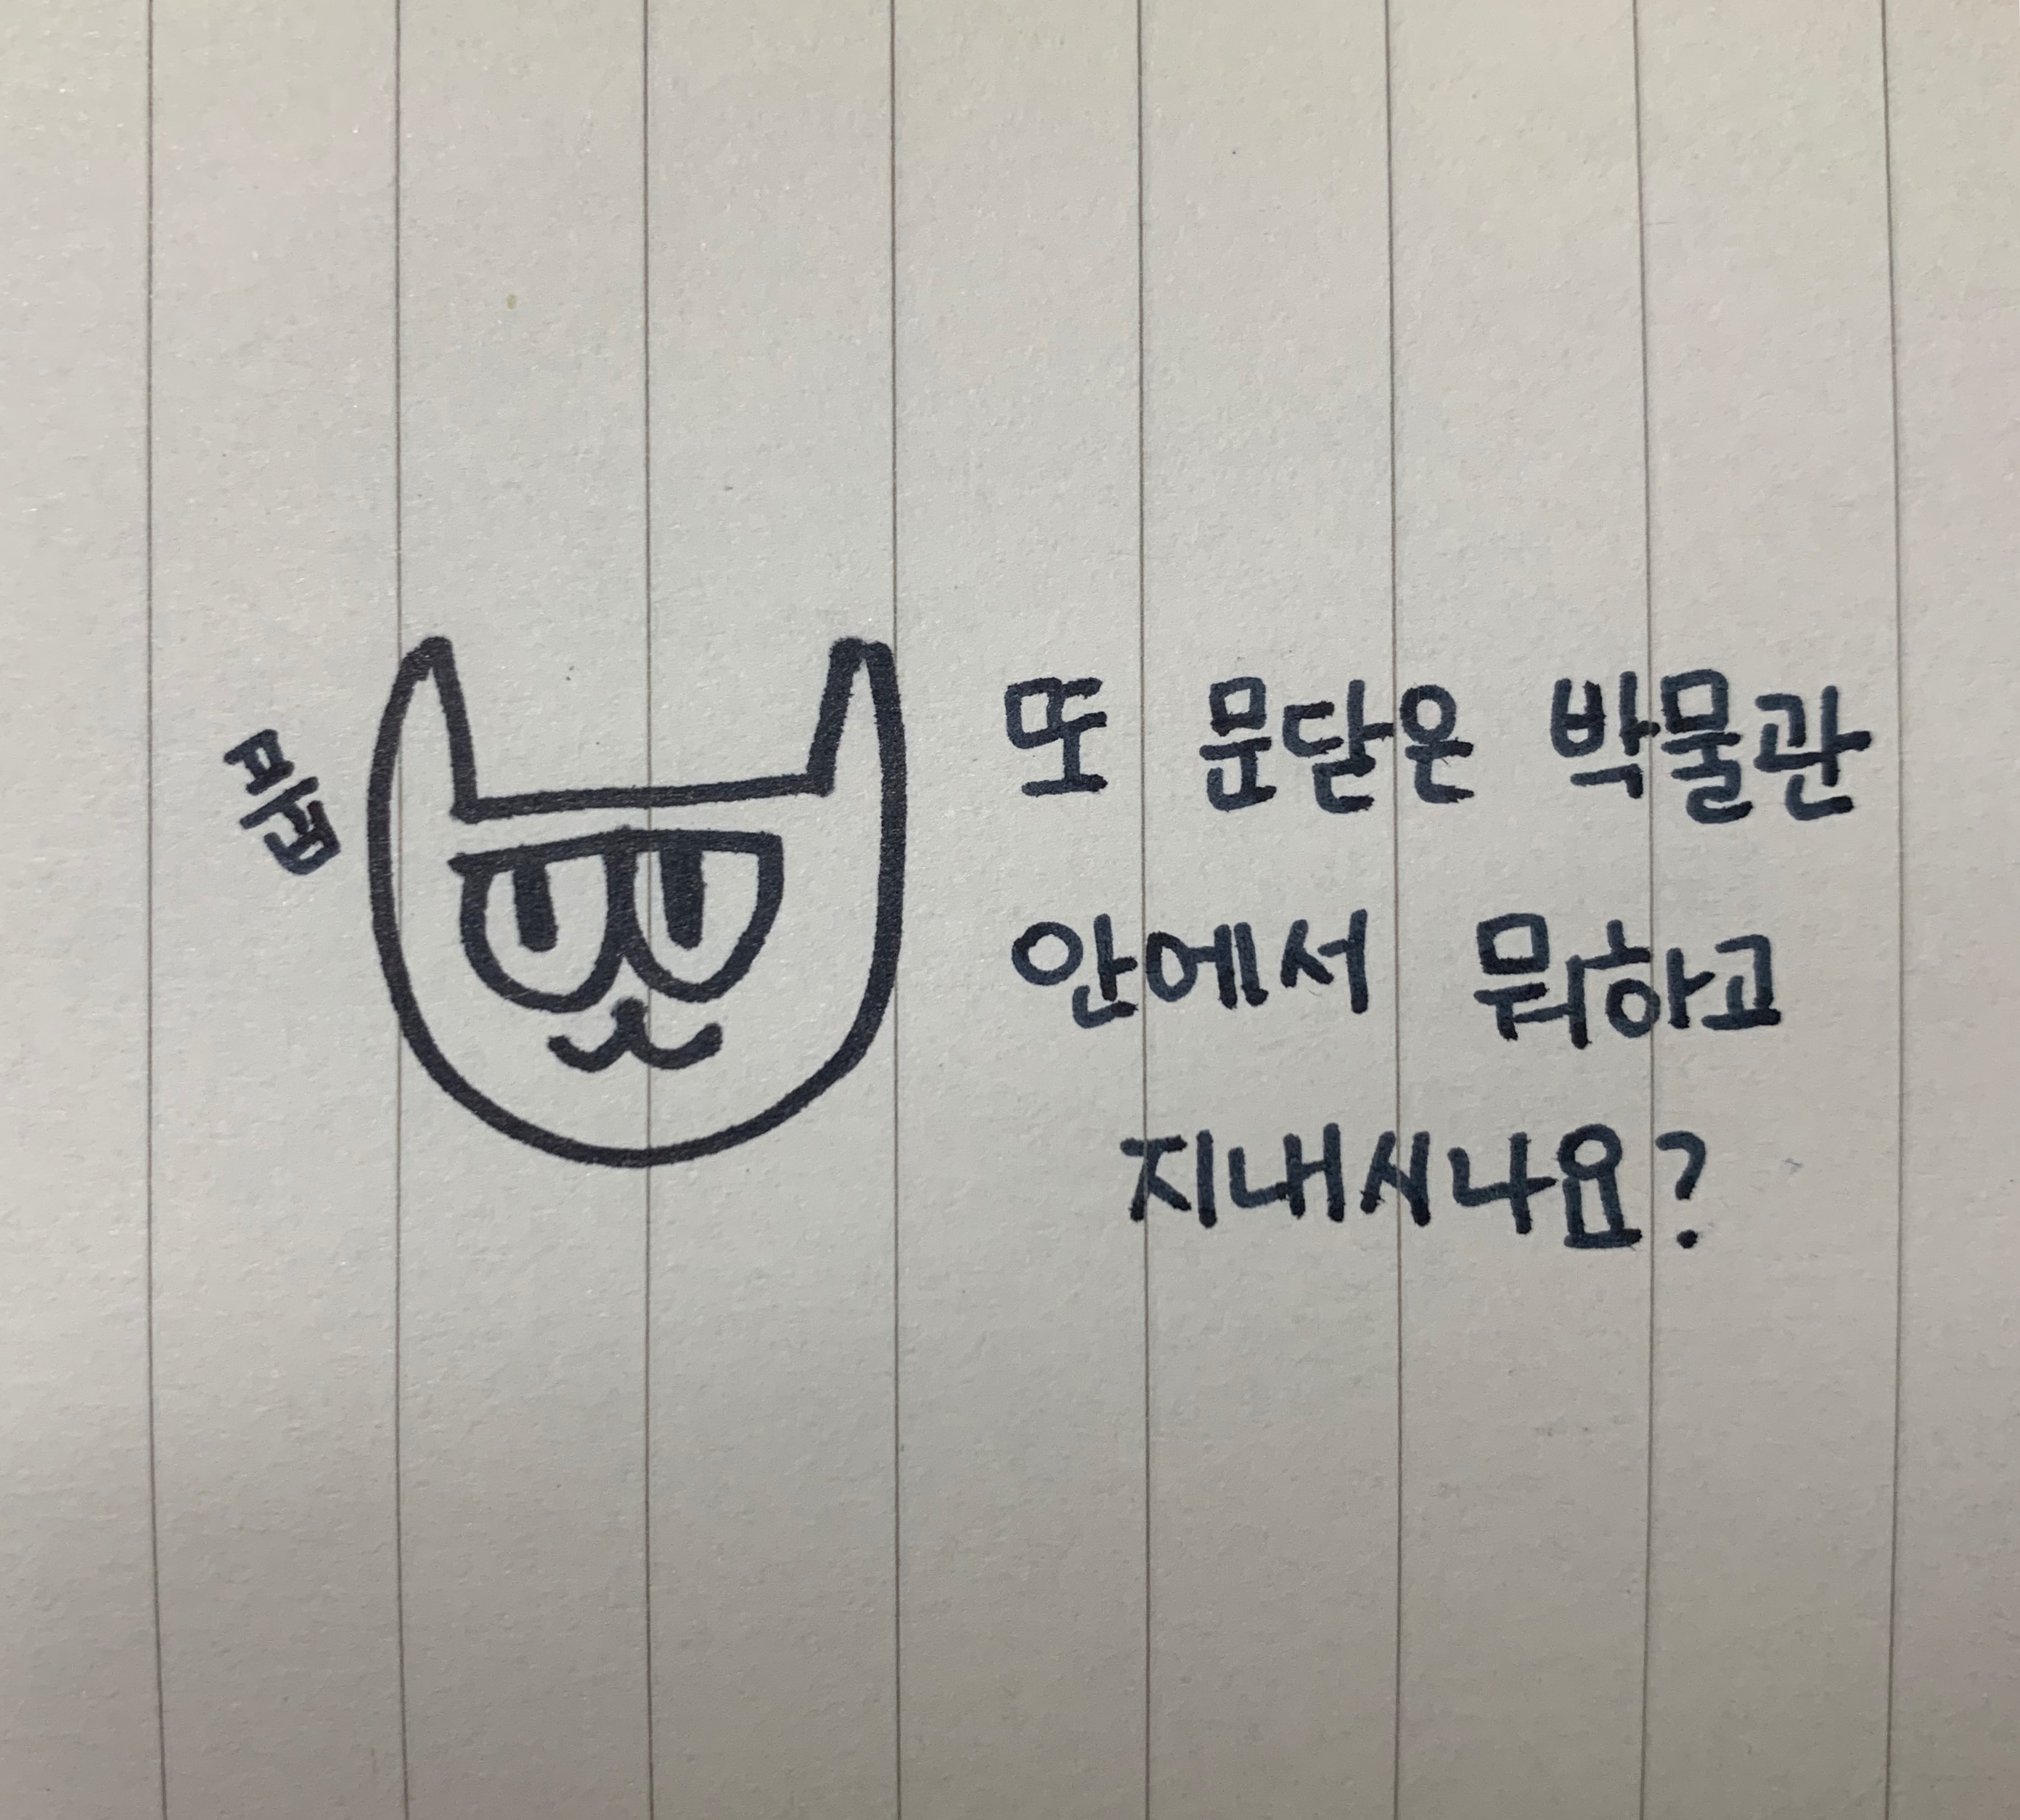 또 문닫은 박물관
안에서 뭐하고
지내시나요?